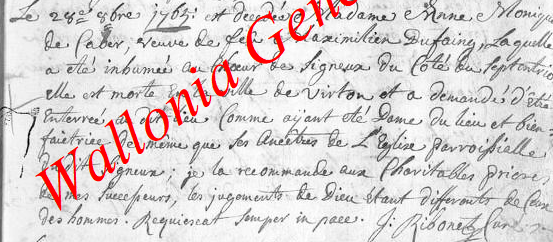 Le 28e 8bre 1765: est decedée Madame Anne Moniq
de Cader, veuve de feu Maximilien Dufaing, Laquelle
a été inhumée au Chœur de Signeux du Coté du Septentrio
elle est morte en la ville de Virton et a demandé d'être
Enterrée au dit lieu Comme aÿant été Dame du lieu et bien
faictrice de même que ses Ancêtres de L'Eglise parroissialle
Signeux; je la recommande aux Charitables prieres
de mes successeurs, les jugements de Dieu étant differents de Ceux
des hommes. Requiescat semper in pace. J. Ribonet Curé
Wallonia Gene